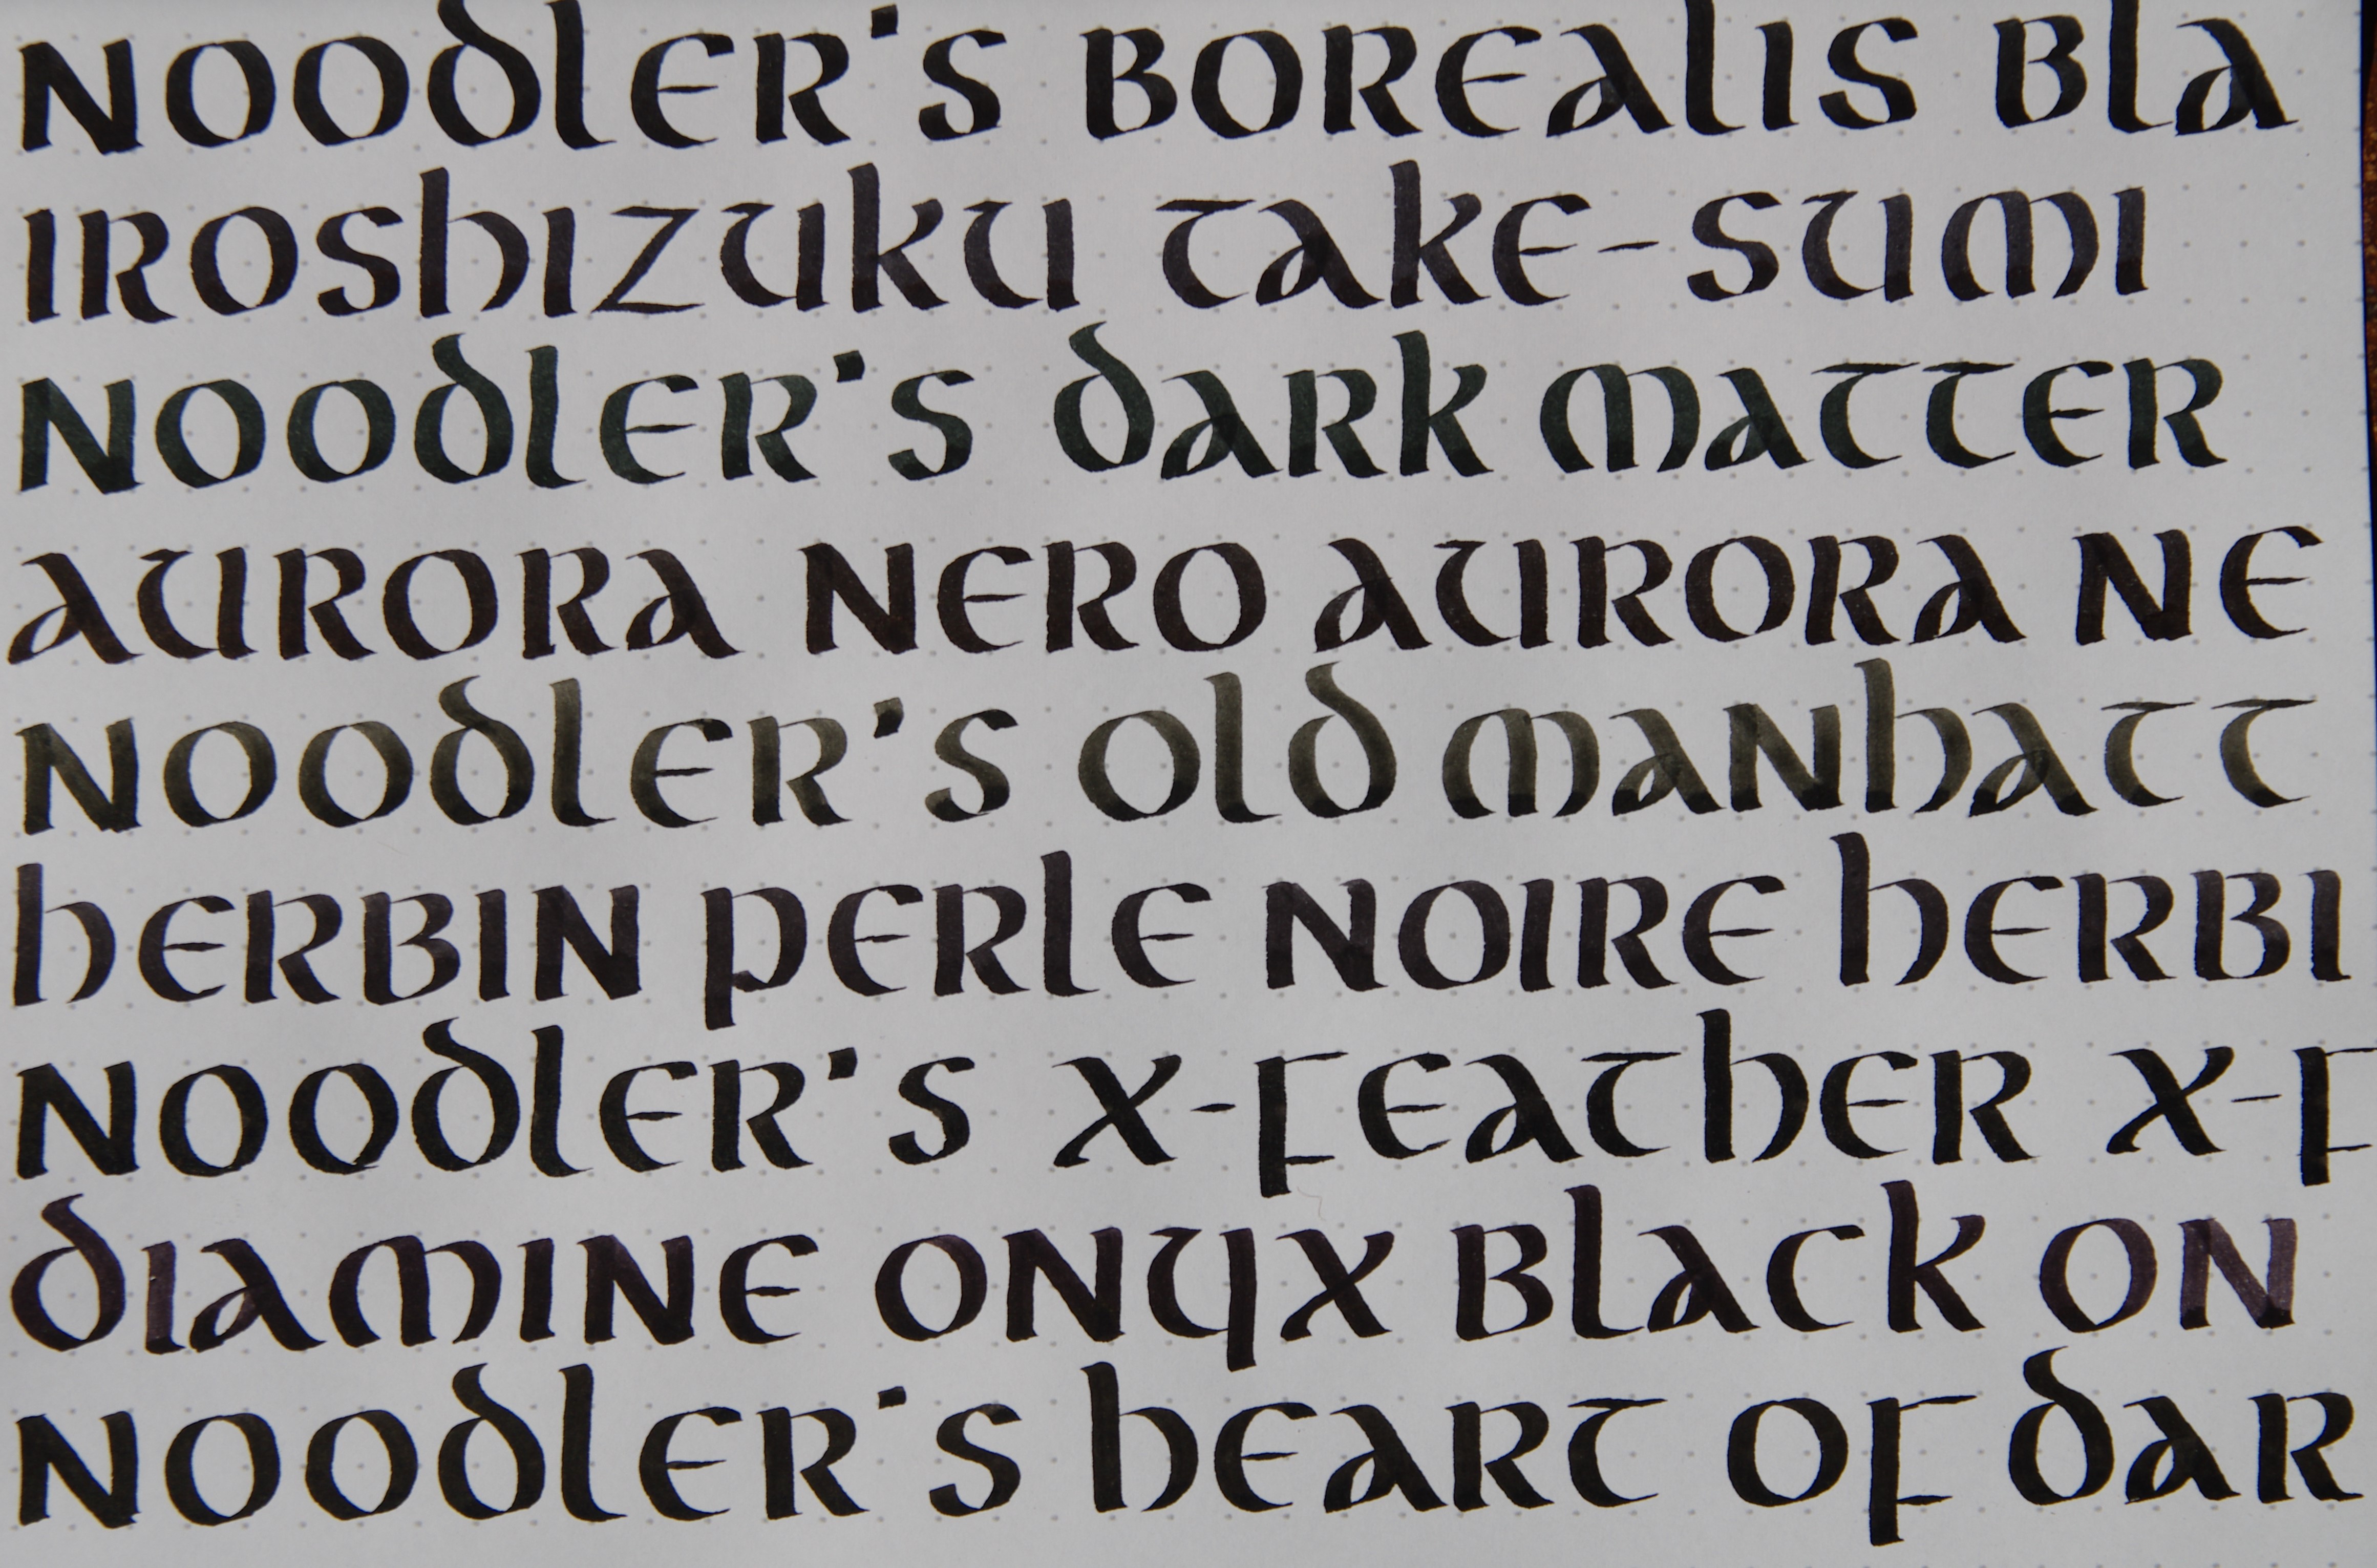 NOODLER'S BOREALIS BLA
IROSHIZUKU TAKE-SUMI
NOODLER'S DARK MATTER
AURORA NERO AURORA NE
NOODLER'S OLD MANHATT
HERBIN PERLE NOIRE HERBI
NOODLER'S X-FEATHER X-F
DIAMINE ONYX BLACK ON
NOODLER'S HEART OF DAR